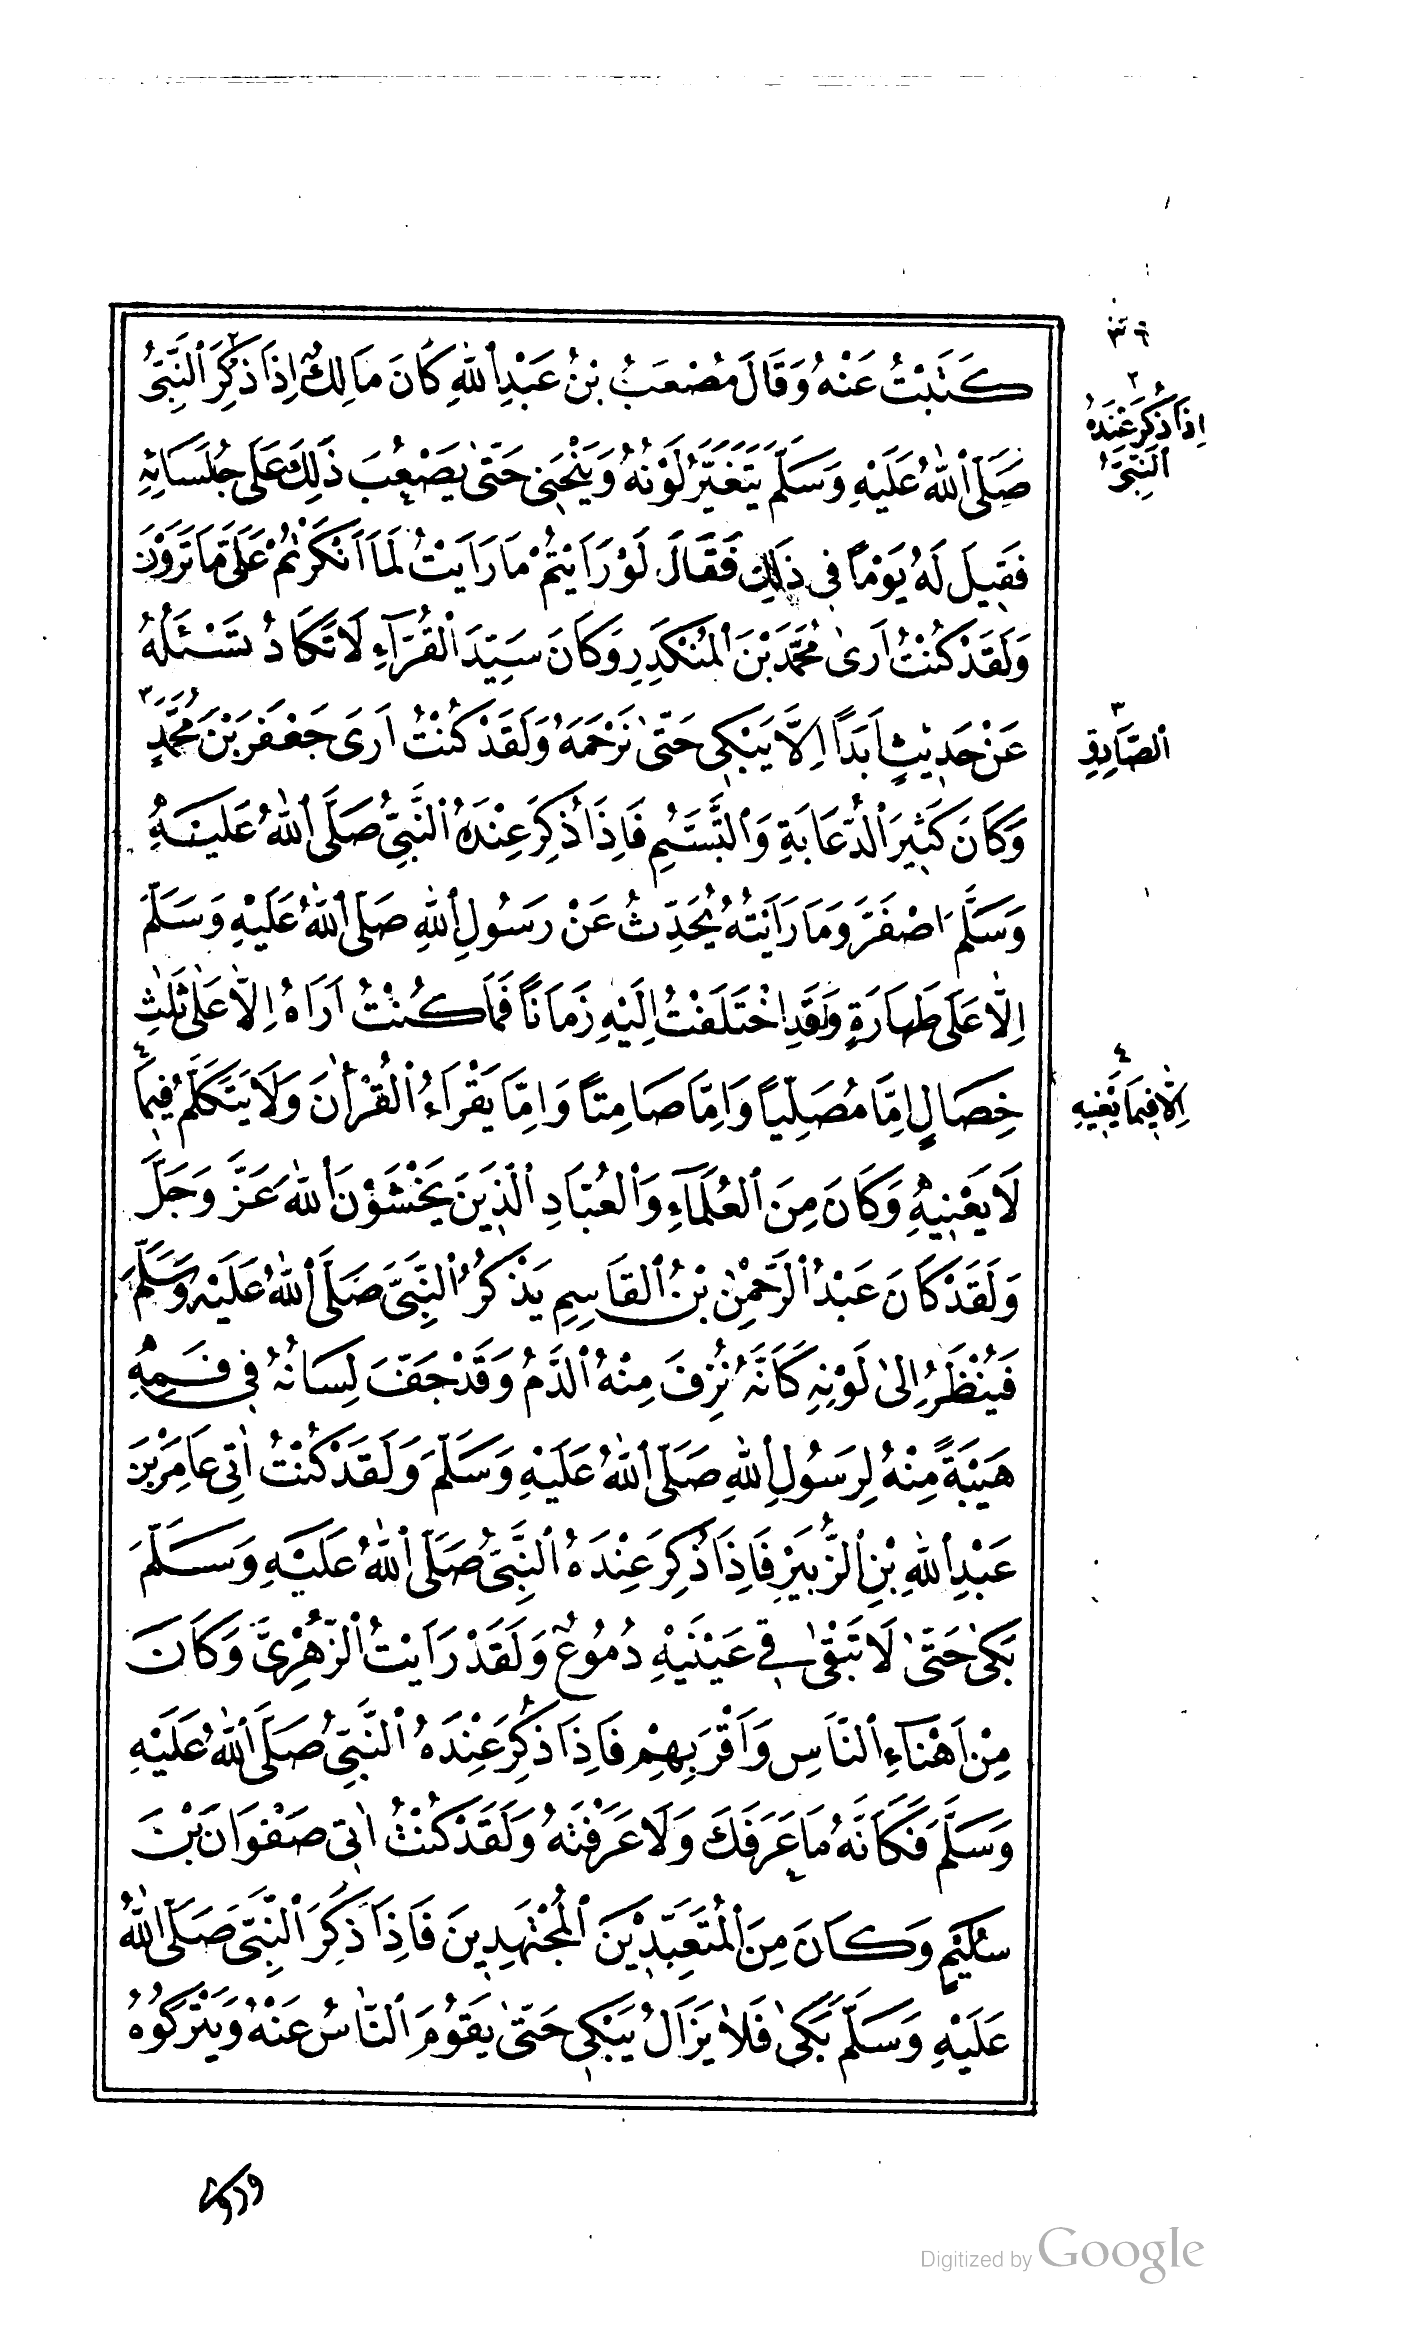 كَتَبْتُ عَنْهُ وَقَالَ مُصْعَبُ بْنُ عَبْدِ اللهِ كَانَ مَالِكٌ اِذَا ذَكَرَ النَّبِىَّ
صَلَّى اللهُ عَلَيْهِ وَسَلَّمَ يَتَغَيَّرُ لَوْنُهُ وَيَنْحَنِى حَتّٰى يَصْعُبَ ذٰلِكَ عَلٰى جُلَسَائِهِ
فَقِيلَ لَهُ يَوْمًا فِى ذٰلِكَ فَقَالَ لَوْ رَاَيْتُمْ مَا رَاَيْتُ لَمَا اَنْكَرْتُمْ عَلَىَّ مَا تَرَوْنَ
وَلَقَدْ كُنْتُ اَرٰى مُحَمَّدَ بْنَ الْمُنْكَدِرِ وَكَانَ سَيِّدَ الْقُرَّآءِ لَا تَكَادُ تَسْئَلُهُ
عَنْ حَدِيثٍ اَبَدًا اِلَّا يَبْكِى حَتّٰى نَرْحَمَهُ وَلَقَدْ كُنْتُ اَرٰى جَعْفَرَ بْنَ مُحَمَّدٍ ٣
وَكَانَ كَثِيرَ الدُّعَابَةِ وَالتَّبَسُّمِ فَاِذَا ذُكِرَ عِنْدَهُ النَّبِىُّ صَلَّى اللهُ عَلَيْهِ
وَسَلَّمَ اصْفَرَّ وَمَا رَاَيْتُهُ يُحَدِّثُ عَنْ رَسُولِ اللهِ صَلَّى اللهُ عَلَيْهِ وَسَلَّمَ
اِلَّا عَلٰى طَهَارَةٍ وَلَقَدِ اخْتَلَفْتُ اِلَيْهِ زَمَانًا فَمَا كُنْتُ اَرَاهُ اِلَّا عَلٰى ثَلٰثِ
خِصَالٍ اِمَّا مُصَلِّيًا وَاِمَّا صَامِتًا وَاِمَّا يَقْرَاُ الْقُرْاٰنَ وَلَا يَتَكَلَّمُ فِيمَا ٤
لَا يَعْنِيهِ وَكَانَ مِنَ الْعُلَمَآءِ وَالْعُبَّادِ الَّذِينَ يَخْشَوْنَ اللهَ عَزَّ وَجَلَّ
وَلَقَدْ كَانَ عَبْدُ الرَّحْمٰنِ بْنُ الْقَاسِمِ يَذْكُرُ النَّبِىَّ صَلَّى اللهُ عَلَيْهِ وَسَلَّمَ
فَيُنْظَرُ اِلٰى لَوْنِهِ كَاَنَّهُ نُزِفَ مِنْهُ الدَّمُ وَقَدْ جَفَّ لِسَانُهُ فِى فَمِهِ
هَيْبَةً مِنْهُ لِرَسُولِ اللهِ صَلَّى اللهُ عَلَيْهِ وَسَلَّمَ وَلَقَدْ كُنْتُ اٰتِى عَامِرَ بْنَ
عَبْدِ اللهِ بْنِ الزُّبَيْرِ فَاِذَا ذُكِرَ عِنْدَهُ النَّبِىُّ صَلَّى اللهُ عَلَيْهِ وَسَلَّمَ
بَكٰى حَتّٰى لَا تَبْقٰى فِى عَيْنَيْهِ دُمُوعٌ وَلَقَدْ رَاَيْتُ الزُّهْرِىَّ وَكَانَ
مِنْ اَهْنَاءِ النَّاسِ وَاَقْرَبِهِمْ فَاِذَا ذُكِرَ عِنْدَهُ النَّبِىُّ صَلَّى اللهُ عَلَيْهِ
وَسَلَّمَ فَكَاَنَّهُ مَا عَرَفَكَ وَلَا عَرَفْتَهُ وَلَقَدْ كُنْتُ اٰتِى صَفْوَانَ بْنَ
سُلَيْمٍ وَكَانَ مِنَ الْمُتَعَبِّدِيْنَ الْمُجْتَهِدِينَ فَاِذَا ذَكَرَ النَّبِىَّ صَلَّى اللهُ
عَلَيْهِ وَسَلَّمَ بَكٰى فَلَا يَزَالُ يَبْكِى حَتّٰى يَقُومَ النَّاسُ عَنْهُ وَيَتْرُكُوهُ
٢
اِذَا ذُكِرَ عِنْدَهُ
النَّبِىُّ
٣
الصَّادِقِ
٤
اِلَّا فِيمَا يَعْنِيهِ
Digitized by Google